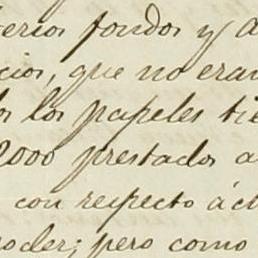 terios fondos y a
cios, que no eran
los los papeles tie
2000 prestados a
con respecto á
poder; pero como